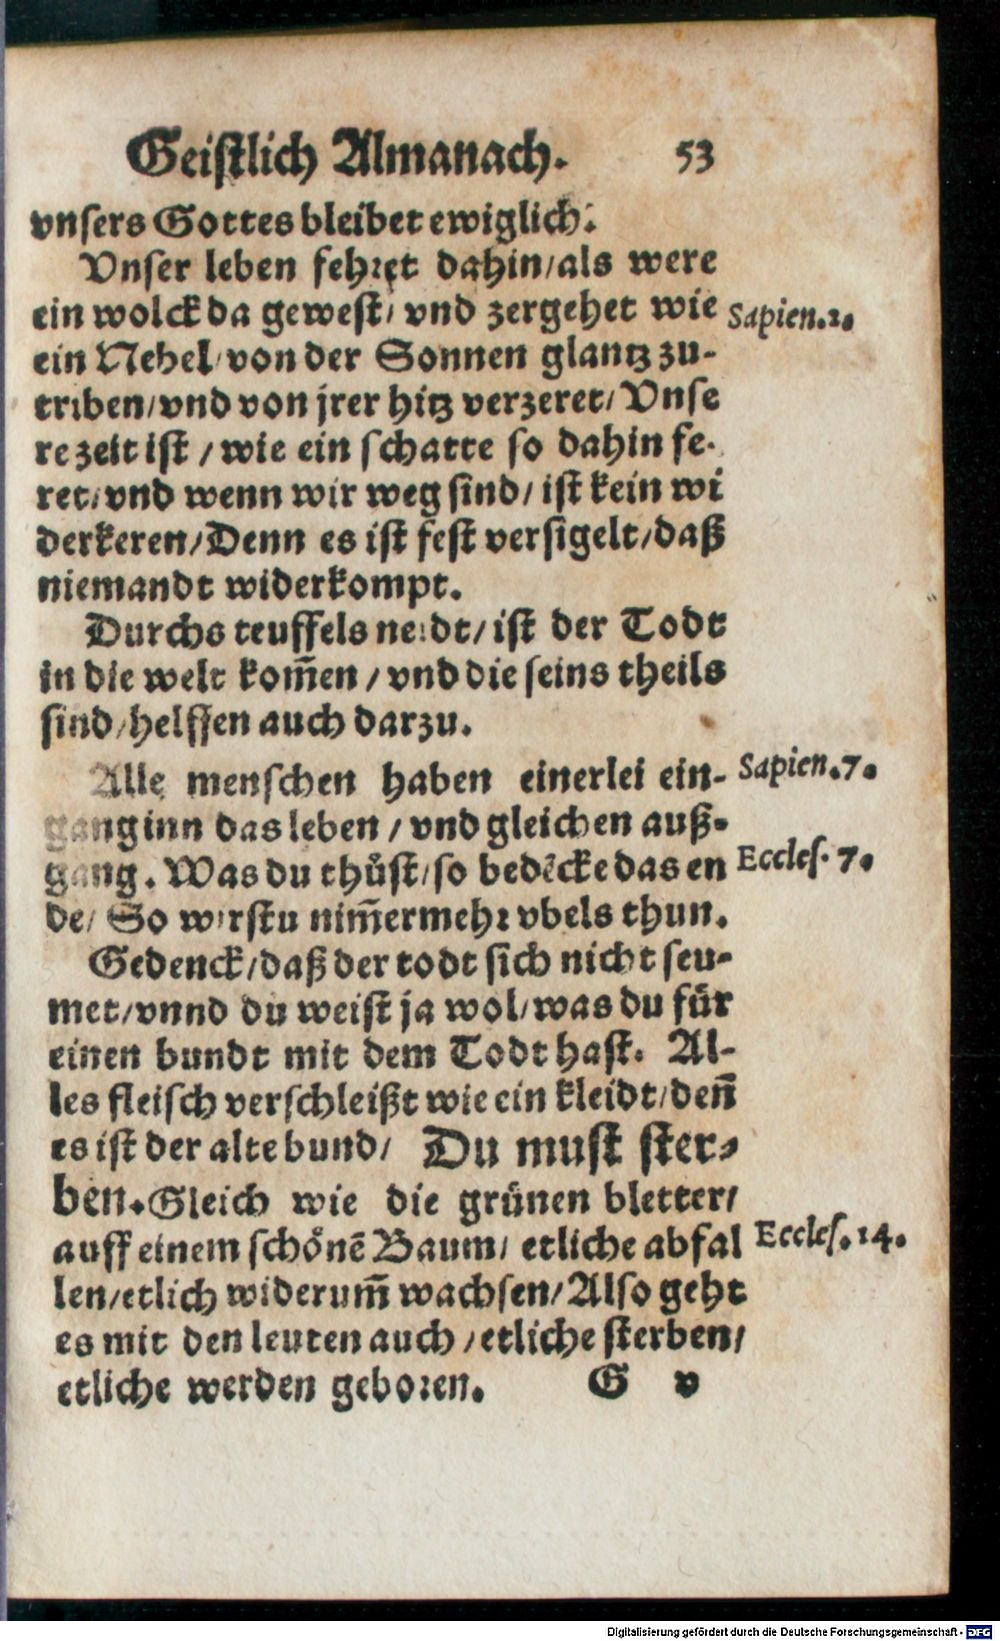 Geistlich Almanach. 53
vnsers Gottes bleibet ewiglich.
Vnser leben fehret dahin/als were
ein wolck da gewest/ vnd zergehet wie
Sapien.2.
ein Nebel/ von der Sonnen glantz zu-
triben/vnd von jrer hitz verzeret/ Vnse
re zeit ist / wie ein schatte so dahin fe-
ret/vnd wenn wir weg sind/ ist kein wi
derkeren/Denn es ist fest versigelt/daß
niemandt widerkompt.
Durchs teuffels neidt/ ist der Todt
in die welt kom̃en / vnd die seins theils
sind/helffen auch darzu.
Alle menschen haben einerlei ein-
Sapien.7.
gang inn das leben / vnd gleichen auß-
gang. Was du thůst/so bedẽcke das en
Eccles. 7.
de/ So wirstu nim̃ermehr vbels thun.
Gedenck/daß der todt sich nicht seu-
met/vnnd du weist ja wol/was du für
einen bundt mit dem Todt hast. Al-
les fleisch verschleißt wie ein kleidt/deñ
es ist der alte bund/ Du must ster-
ben.Gleich wie die grünen bletter/
auff einem schönẽ Baum/ etliche abfal
Eccles. 14.
len/etlich widerum̃ wachsen/Also geht
es mit den leuten auch /etliche sterben/
etliche werden geboren. G v
Digitalisierung gefördert durch die Deutsche Forschungsgemeinschaft - DFG